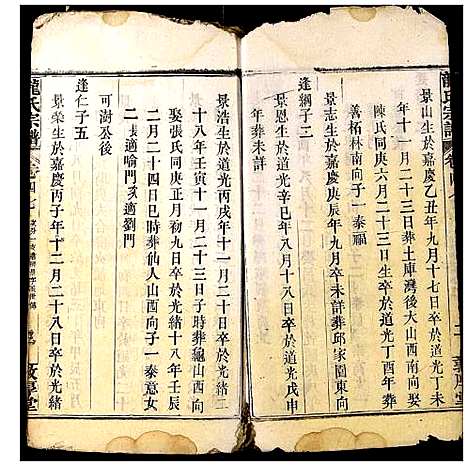 龍氏宗譜
景山生於嘉慶乙丑年九月十七日卒於道光丁未
年十一月二十三日葬土庫灣後大山西南向
陳氏同庚六月二十三日生卒於道光丁酉年葬
善柘林南向子一泰福
景志生於嘉慶庚辰年九月卒未詳葬邱家園東向
逢綱子二
景恩生於道光辛巳年八月十八日卒於道光戊申
年葬未詳
景浩生於道光丙戌年十一月二十日卒於光緒二
十八年壬寅十一月二十三日子時葬龜山西向
娶張氏同庚正月初九日卒於光緒十八年壬辰
二月二十四日巳時葬仙人山西向子一泰意女
二長適喻門次適劉門
可澍公後
逢仁子五
景榮生於嘉慶丙子年十二月二十八日卒於戊
龍氏宗譜
卷四七
敦厚堂